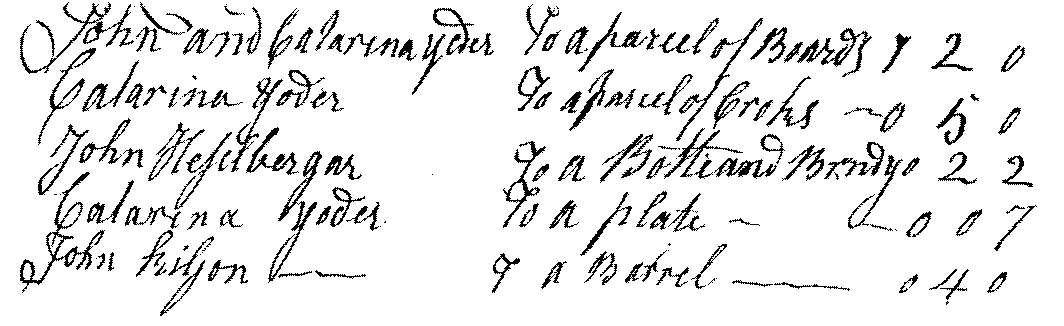 John and Catarina yoder To a parcel of Boards 1 2 0
Catarina Yoder To a parcel of Croks 0 5 0
John Heselbergar To a Botte and Brndy 0 2 2
Catarina yoder To a plate 0 0 7
John kilson T a Barrel 0 4 0